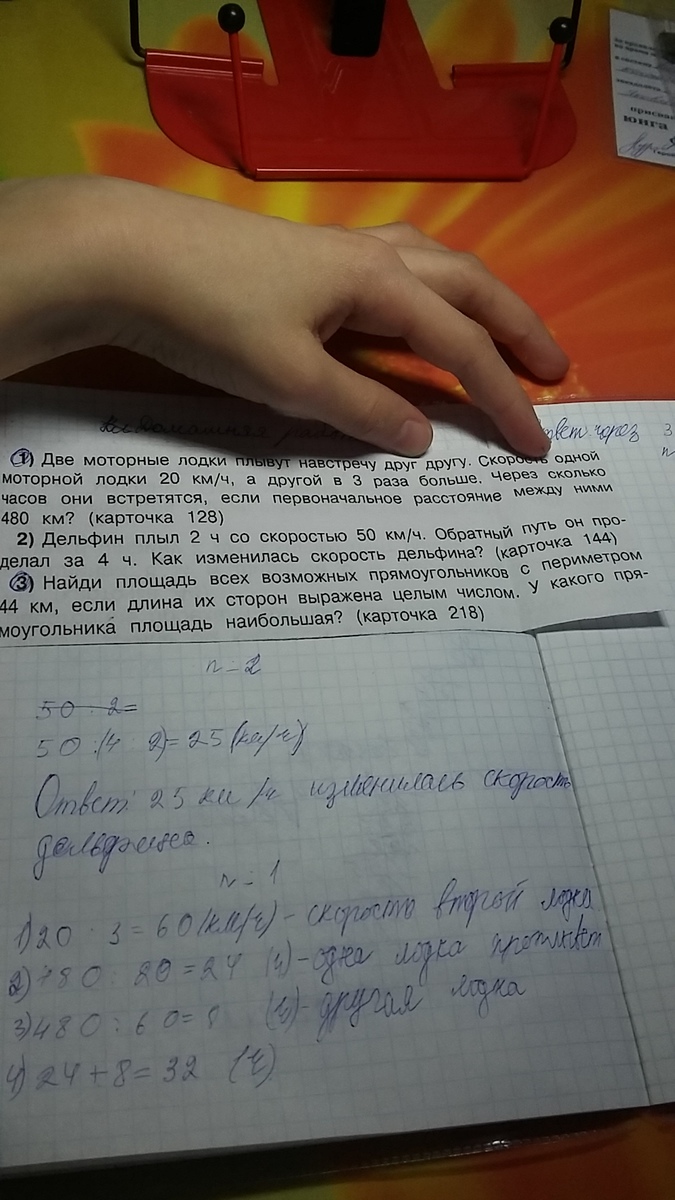 присва
юнга
Домашняя
ответ через
3
1) Две моторные лодки плывут навстречу друг другу. Скорость одной
моторной лодки 20 км/ч, а другой в 3 раза больше. Через сколько
часов они встретятся, если первоначальное расстояние между ними
480 км? (карточка 128)
2) Дельфин плыл 2 ч со скоростью 50 км/ч. Обратный путь он про-
делал за 4 ч. Как изменилась скорость дельфина? (карточка 144)
3) Найди площадь всех возможных прямоугольников с периметром
44 км, если длина их сторон выражена целым числом. У какого пря-
моугольника площадь наибольшая? (карточка 218)
n - 2
50 : 2=
50 :(4 : 2)= 25 (км/ч)
Ответ: 25 км/ч изменилась скорость
дельфина.
n - 1
1) 20 · 3 = 60 (км/ч) - скорость второй лодка
2) 480 : 20 = 24 (ч) - одна лодка проплывет
3) 480 : 60 = 8 (ч) - другая лодка
4) 24 + 8 = 32 (ч)